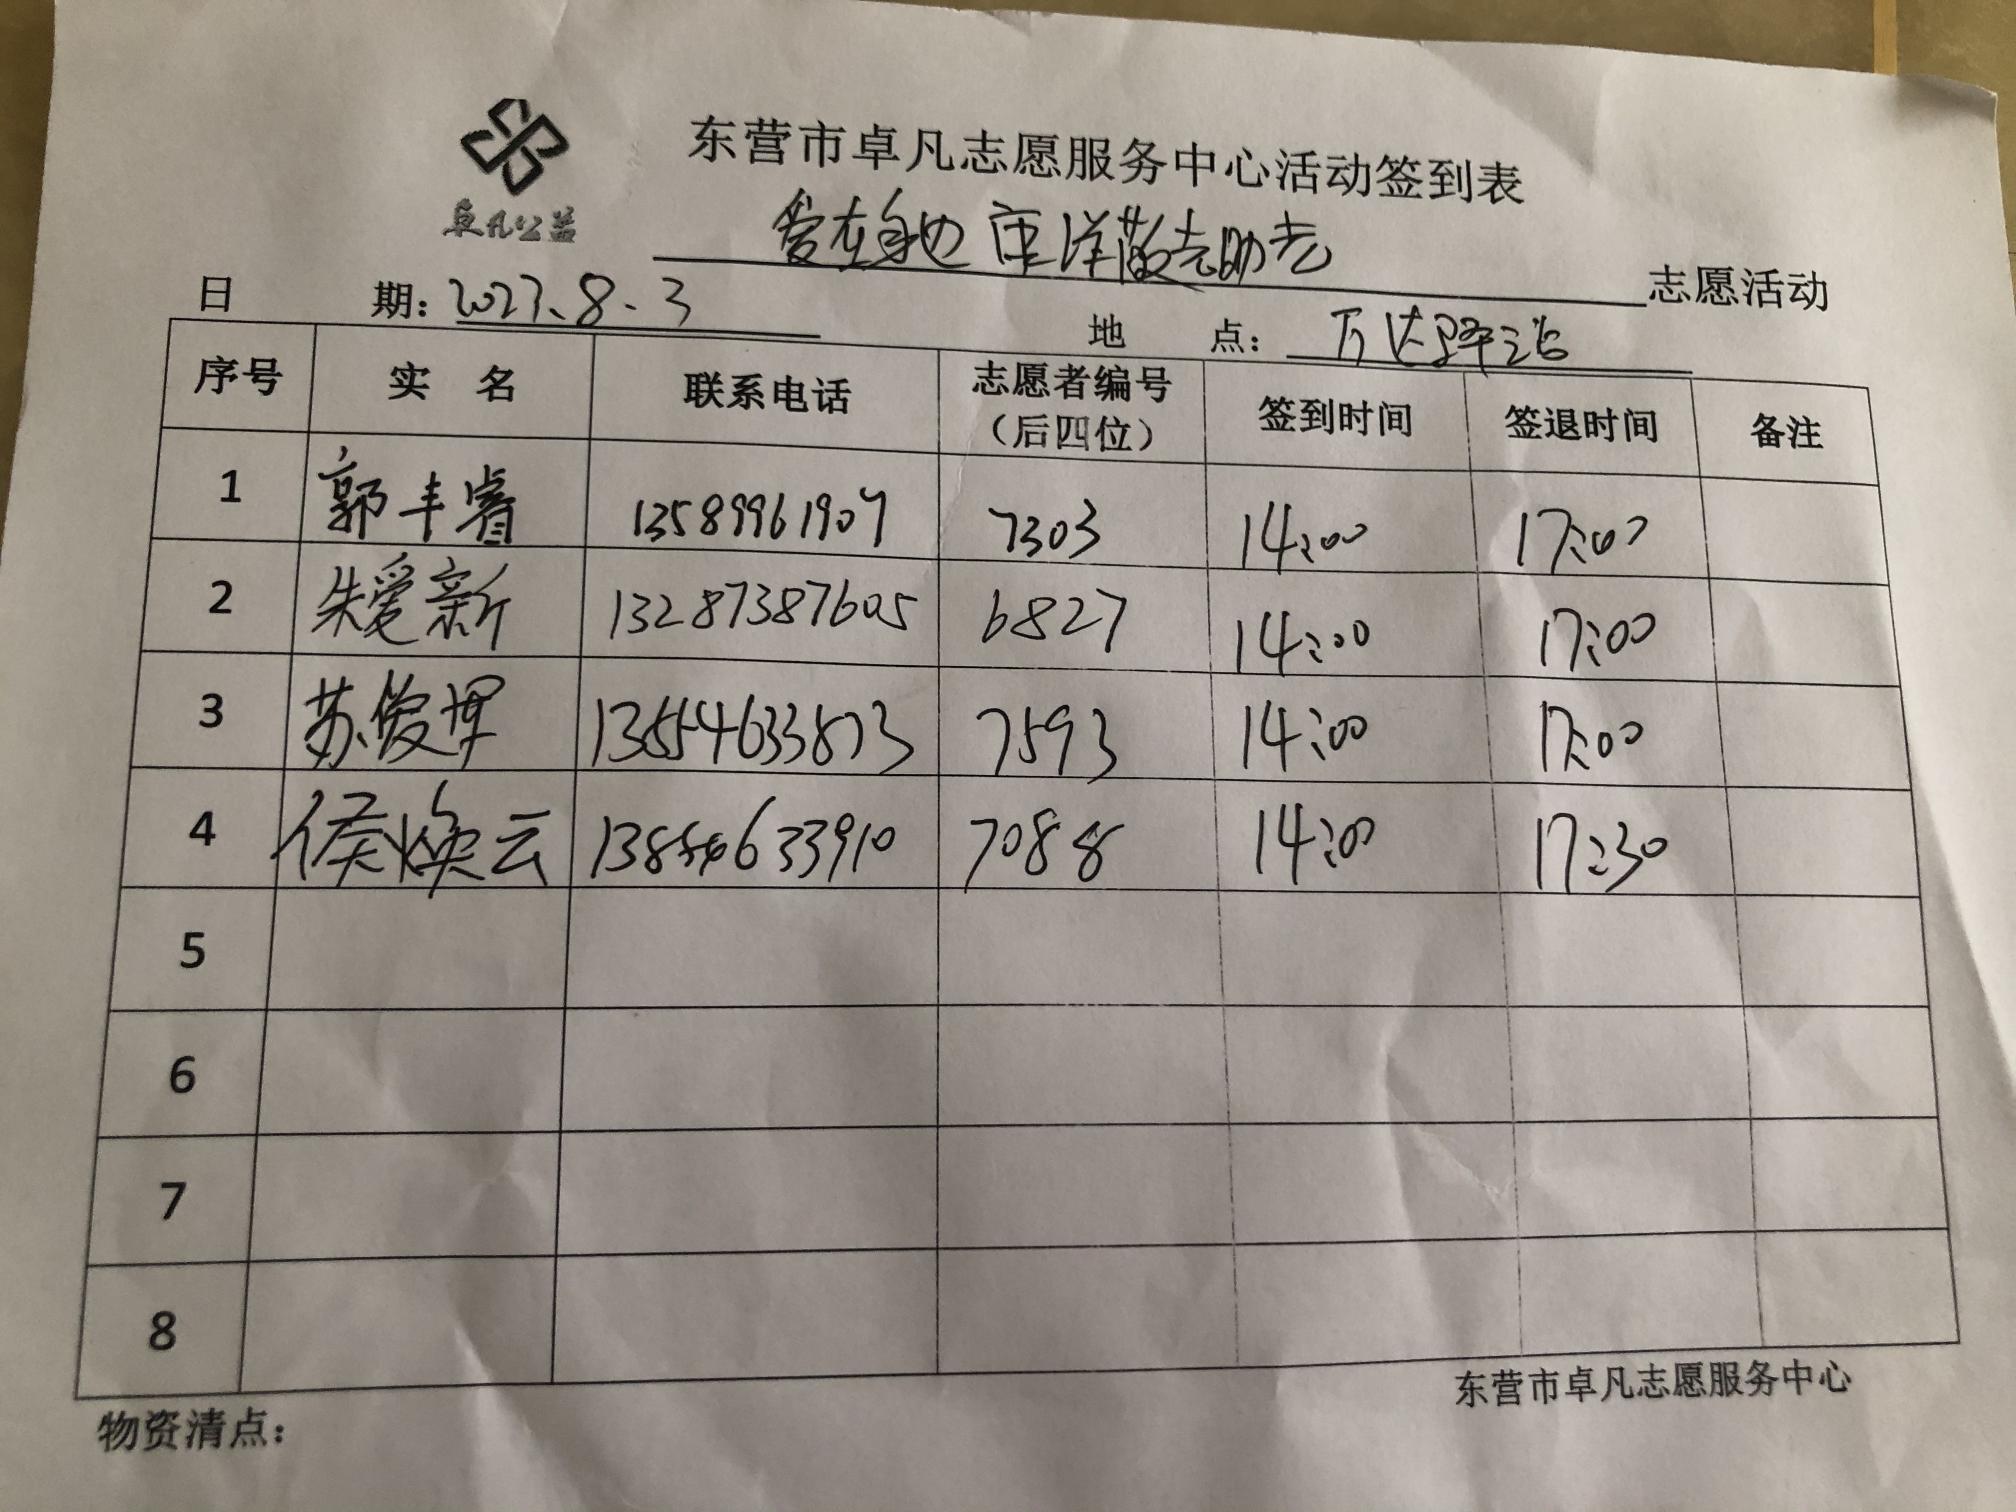 东营市卓凡志愿服务中心活动签到表
卓凡公益
爱在身边 庙洋敬老助老 志愿活动
日 期: 2023.8.3
地 点: 万达驿站
序号 实 名 联系电话 志愿者编号（后四位） 签到时间 签退时间 备注
1 郭丰睿 13589961907 7303 14:00 17:00
2 朱爱新 13287387605 6827 14:00 17:00
3 苏俊 13554633573 7593 14:00 17:00
4 侯焕云 633910 7088 14:00 17:30
5
6
7
8
东营市卓凡志愿服务中心
物资清点: